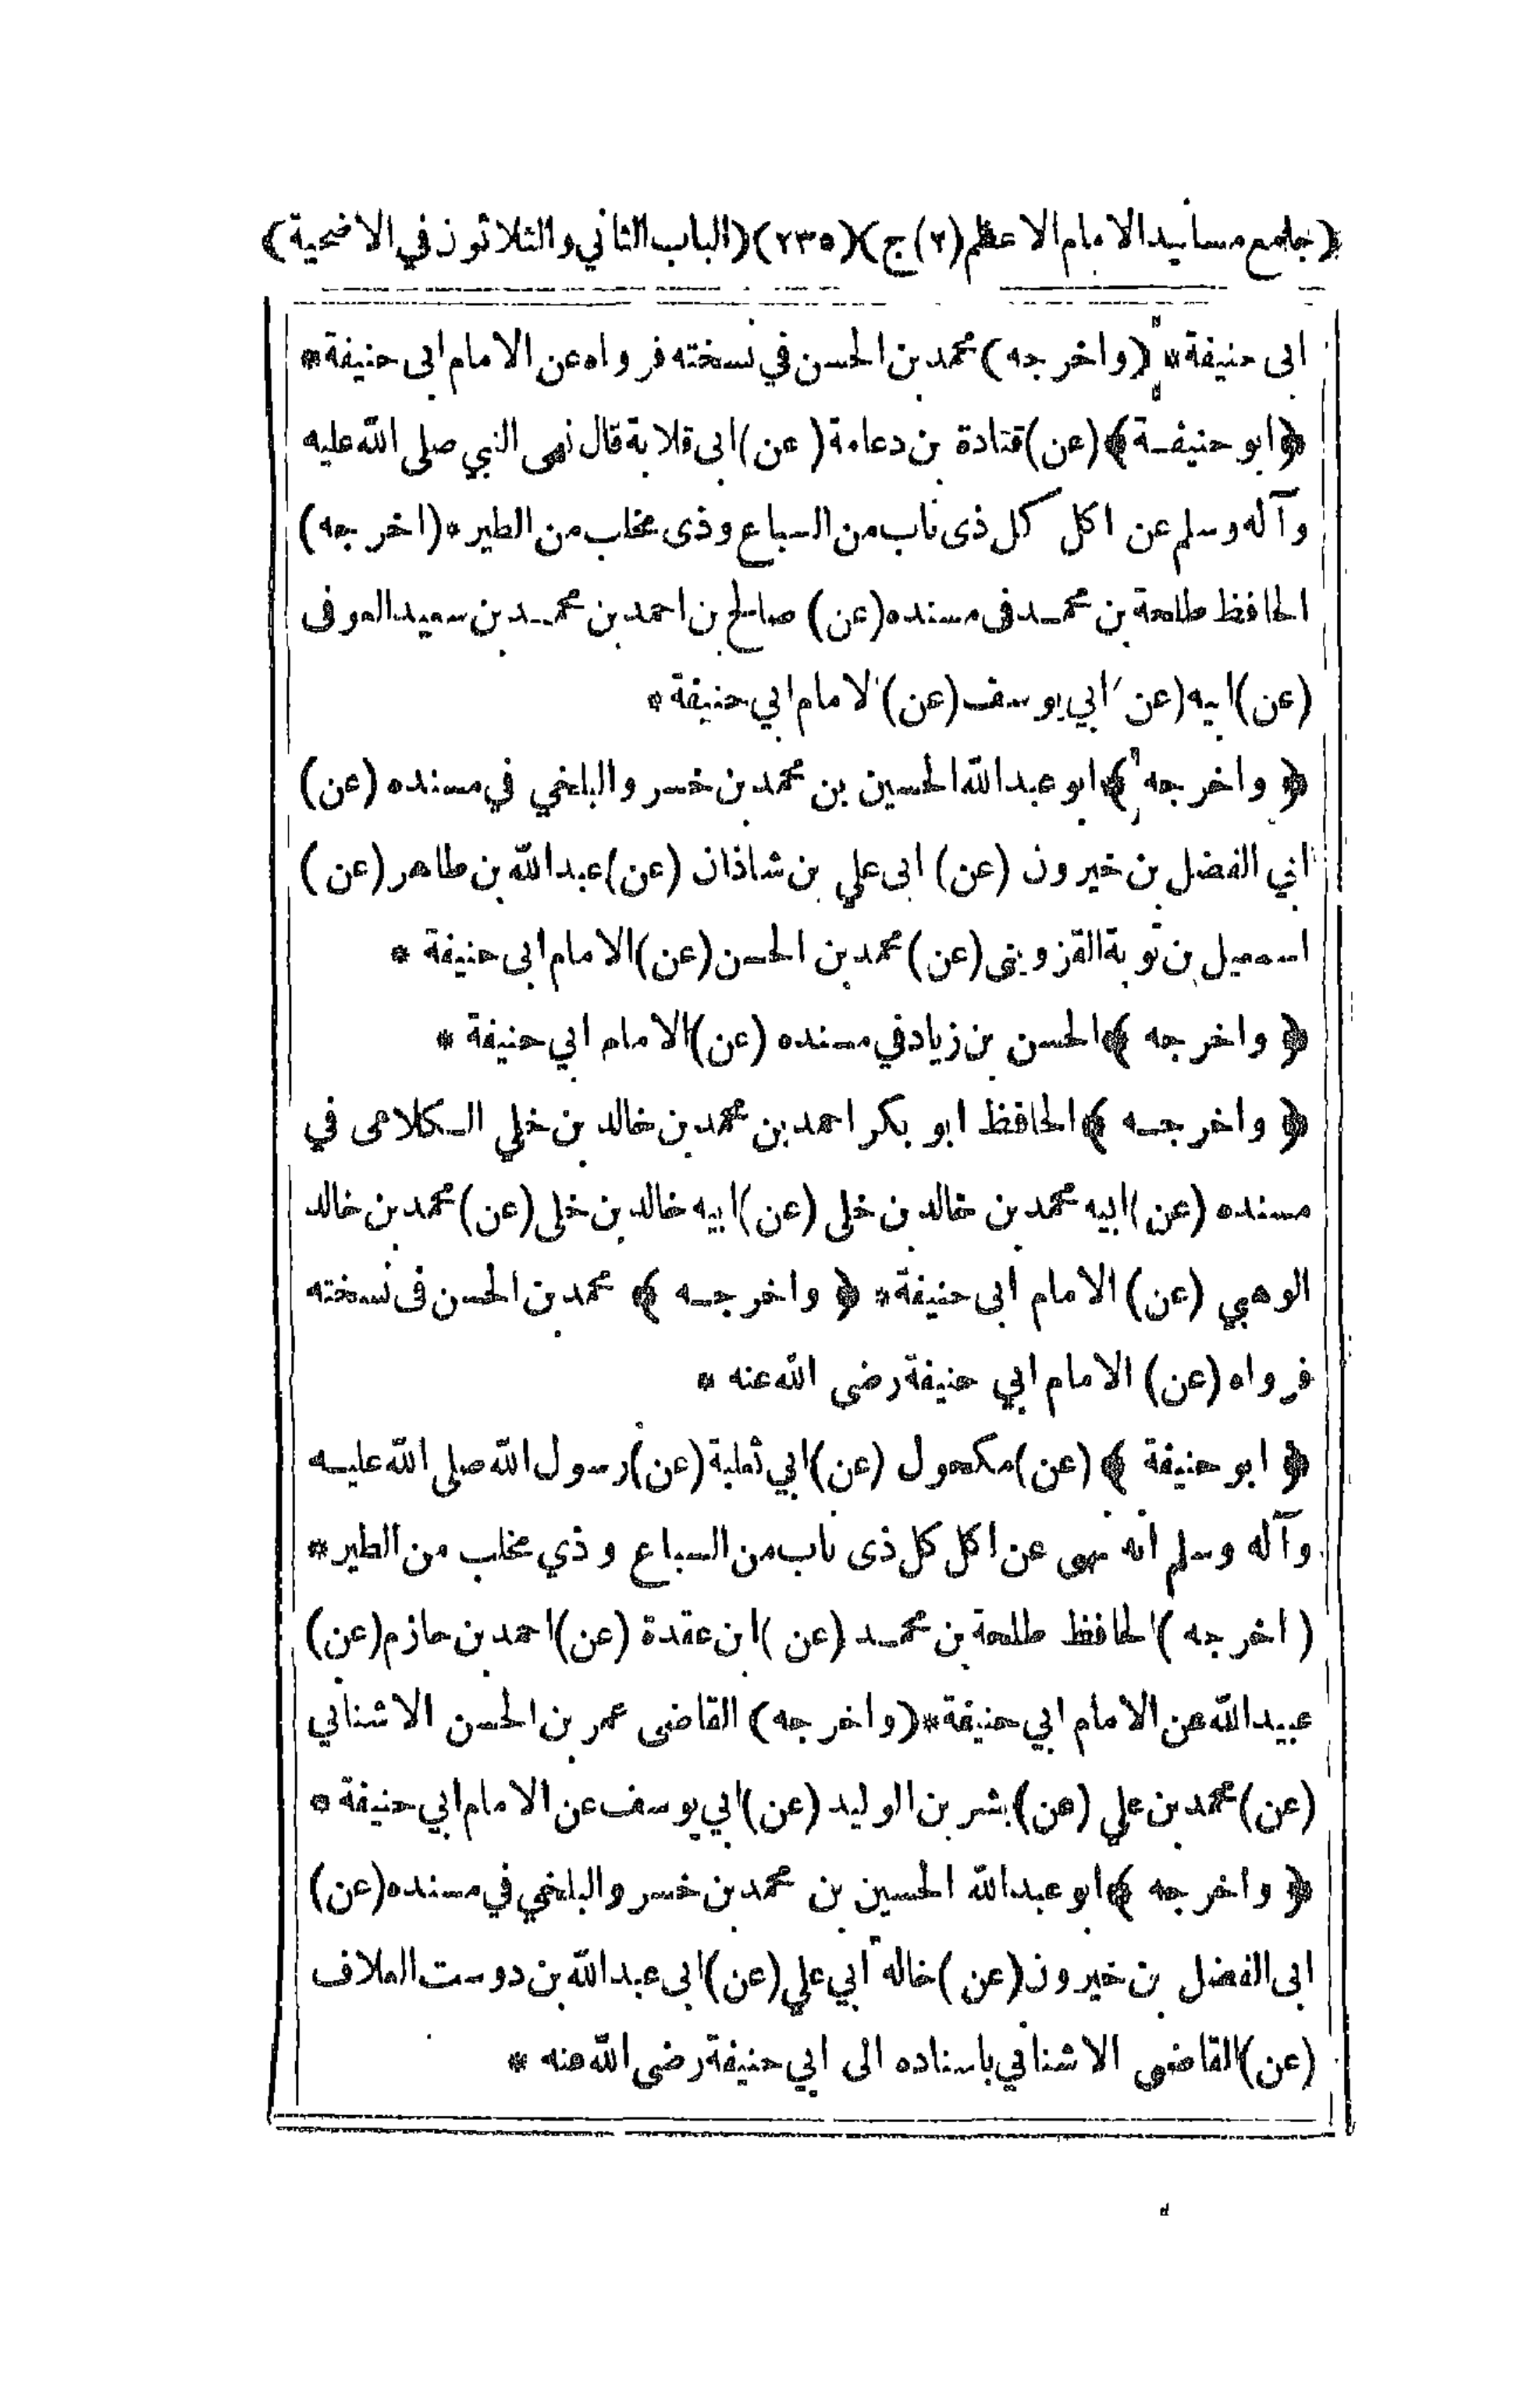 (جامع مسانيد الامام الاعظم (٢) ج)(٢٣٥)(الباب الثاني والثلاثون في الاضحية)
ابى حنيفة* (واخرجه) محمد بن الحسن في نسخته فرواه عن الامام ابى حنيفة*
﴿ابو حنيفة﴾ (عن) قتادة بن دعامة (عن) ابى قلابة قال نهى النبي صلى الله عليه
وآله وسلم عن اكل كل ذى ناب من السباع وذى مخلب من الطير* (اخرجه)
الحافظ طلحة بن محمد فى مسنده (عن) صالح بن احمد بن محمد بن سعيد العوفى
(عن) ابيه (عن) ابي يوسف (عن) الامام ابي حنيفة*
﴿واخرجه﴾ ابو عبد الله الحسين بن محمد بن خسرو البلخي في مسنده (عن)
ابي الفضل بن خيرون (عن) ابى علي بن شاذان (عن) عبد الله بن طاهر (عن)
اسمعيل بن توبة القزوينى (عن) محمد بن الحسن (عن) الامام ابى حنيفة *
﴿واخرجه﴾ الحسن بن زياد في مسنده (عن) الامام ابي حنيفة *
﴿واخرجه﴾ الحافظ ابو بكر احمد بن محمد بن خالد بن خلي الكلاعى في
مسنده (عن) ابيه محمد بن خالد بن خلى (عن) ابيه خالد بن خلى (عن) محمد بن خالد
الوهبي (عن) الامام ابى حنيفة* ﴿واخرجه﴾ محمد بن الحسن فى نسخته
فرواه (عن) الامام ابي حنيفة رضى الله عنه *
﴿ابو حنيفة﴾ (عن) مكحول (عن) ابي ثعلبة (عن) رسول الله صلى الله عليه
وآله وسلم انه نهى عن اكل كل ذى ناب من السباع وذي مخلب من الطير*
(اخرجه) الحافظ طلحة بن محمد (عن) ابن عقدة (عن) احمد بن حازم (عن)
عبيد الله عن الامام ابي حنيفة* (واخرجه) القاضى عمر بن الحسن الاشناني
(عن) محمد بن علي (عن) بشر بن الوليد (عن) ابي يوسف عن الامام ابي حنيفة *
﴿واخرجه﴾ ابو عبد الله الحسين بن محمد بن خسرو البلخي في مسنده (عن)
ابى الفضل بن خيرون (عن) خاله ابي علي (عن) ابى عبد الله بن دوست العلاف
(عن) القاضى الاشناني باسناده الى ابي حنيفة رضى الله عنه *